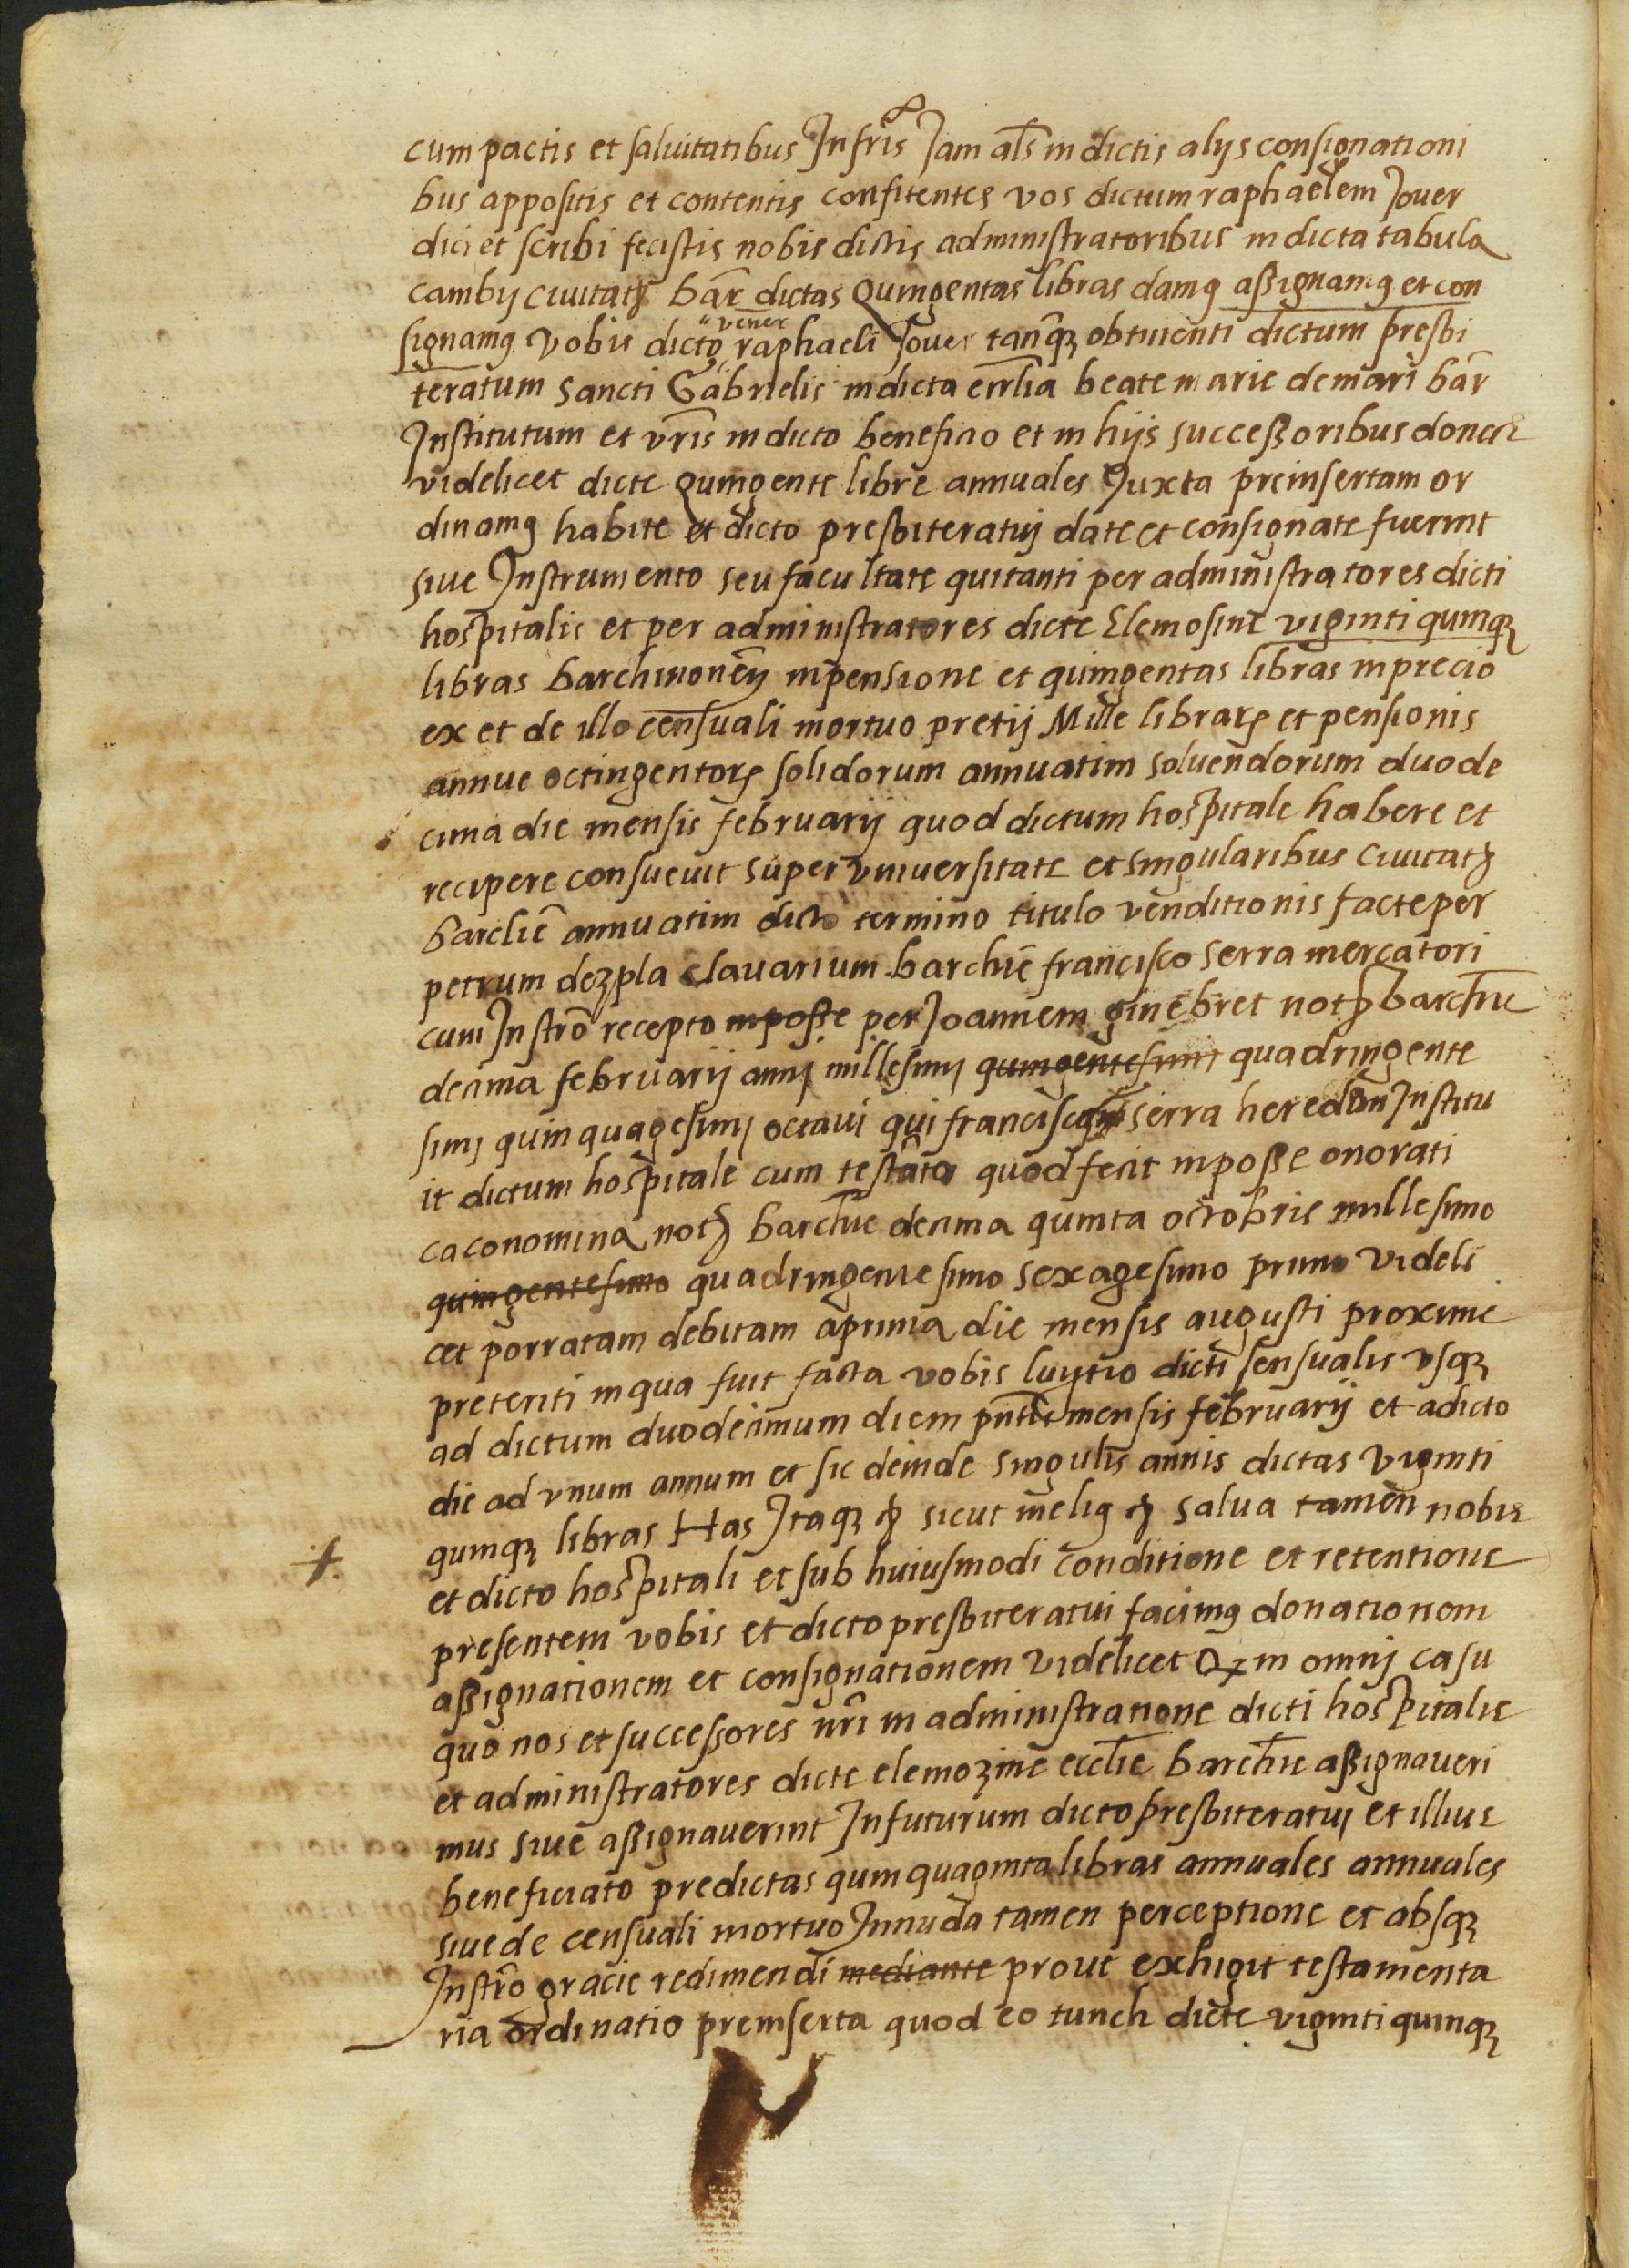 cum pactis et salvitatibus Infrīs Iam al̄s in dictis alijs consignationi
bus appositis et contentis confitentes vos dictum raphaelem Jover
dici et scribi fecistis nobis dictis administratoribus in dicta tabula
cambij civitatꝭ bar̄ dictas Quingentas libras damꝰ assignamꝰ et con
signamꝰ vobis dicto vener raphaeli Jover tanqꝫ obtinenti dictum presbi
teratum Sancti Gabrielis in dicta eccl̄ia beate marie de mari bar̄
Institutum et vr̄is in dicto beneficio et in hijs successoribus donec
videlicet dicte Quingente libre annuales Juxta preinsertam or
dinamꝰ habite et dicto presbiteratuj date et consignate fuerint
sive Instrumento seu facultate quitanti per administratores dicti
hospitalis et per administratores dicte Elemosine viginti quinqꝫ
libras barchinoneñ in pensione et quingentas libras in precio
ex et de illo censuali mortuo pretij Mille librarꝝ et pensionis
annue octingentorꝝ solidorum annuatim solvendorum duode
cima die mensis februarij quod dictum hospitale habere et
recipere consuevit super vniversitate et singularibus civitatꝭ
barchn̄e annuatim dicto termino titulo venditionis facte per
petrum dezpla clavarium barchn̄e francisco serra mercatori
cum Instro̅ recepto in posse per Joannem ginebret notꝭ barchn̄e
decima februarij annj millesimj quingentesimi quadringente
simj quinquagesimj octavi qui franciscus serra heredem Institu
it dictum hospitale cum testāto quod fecit in posse onorati
caconomina notꝭ barchn̄e decima quinta octobris millesimo
quingentesimo quadringentesimo sexagesimo primo videli
cet porratam debitam aprima die mensis augusti proxime
preteriti in qua fuit facta vobis luytio dicti sensualis vsqꝫ
ad dictum duodecimum diem pn̄tis mensis februarij et a dicto
die ad vnum annum et sic deinde singulis annis dictas viginti
quinqꝫ libras Has Itaqꝫ ꝭ sicut meliꝰ ꝭ salva tamen nobis
et dicto hospitali et sub huiusmodi conditione et retentione
presentem vobis et dicto presbiteratui facimꝰ donationem
assignationem et consignationem videlicet Qꝫ in omnj casu
quo nos et successores nr̄i in administratione dicti hospitalis
et administratores dicte elemozine eccl̄ie barchn̄e assignaveri
mus sive assignaverint Infuturum dicto presbiteratuj et illius
beneficiato predictas quinquaginta libras annuales annuales
sive de censuali mortuo Innuda tamen perceptione et absqꝫ
Instro̅ gracie redimendi mediante prout exhigit testamenta
ria ordinatio preinserta quod eo tunch dicte viginti quinqꝫ